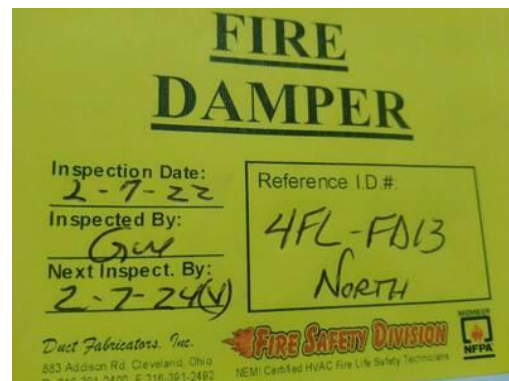 FIRE
DAMPER
Inspection Date:
2-7-22
Inspected By:
Next Inspect. By:
2-7-24(V)
Reference I.D.#:
4FL-FD13
NORTH
Duct Fabricators, Inc.
883 Addison Rd. Cleveland, Ohio
FIRE SAFETY DIVISION
NEMI Certified HVAC Fire Life Safety Technicians
MEMBER
NFPA